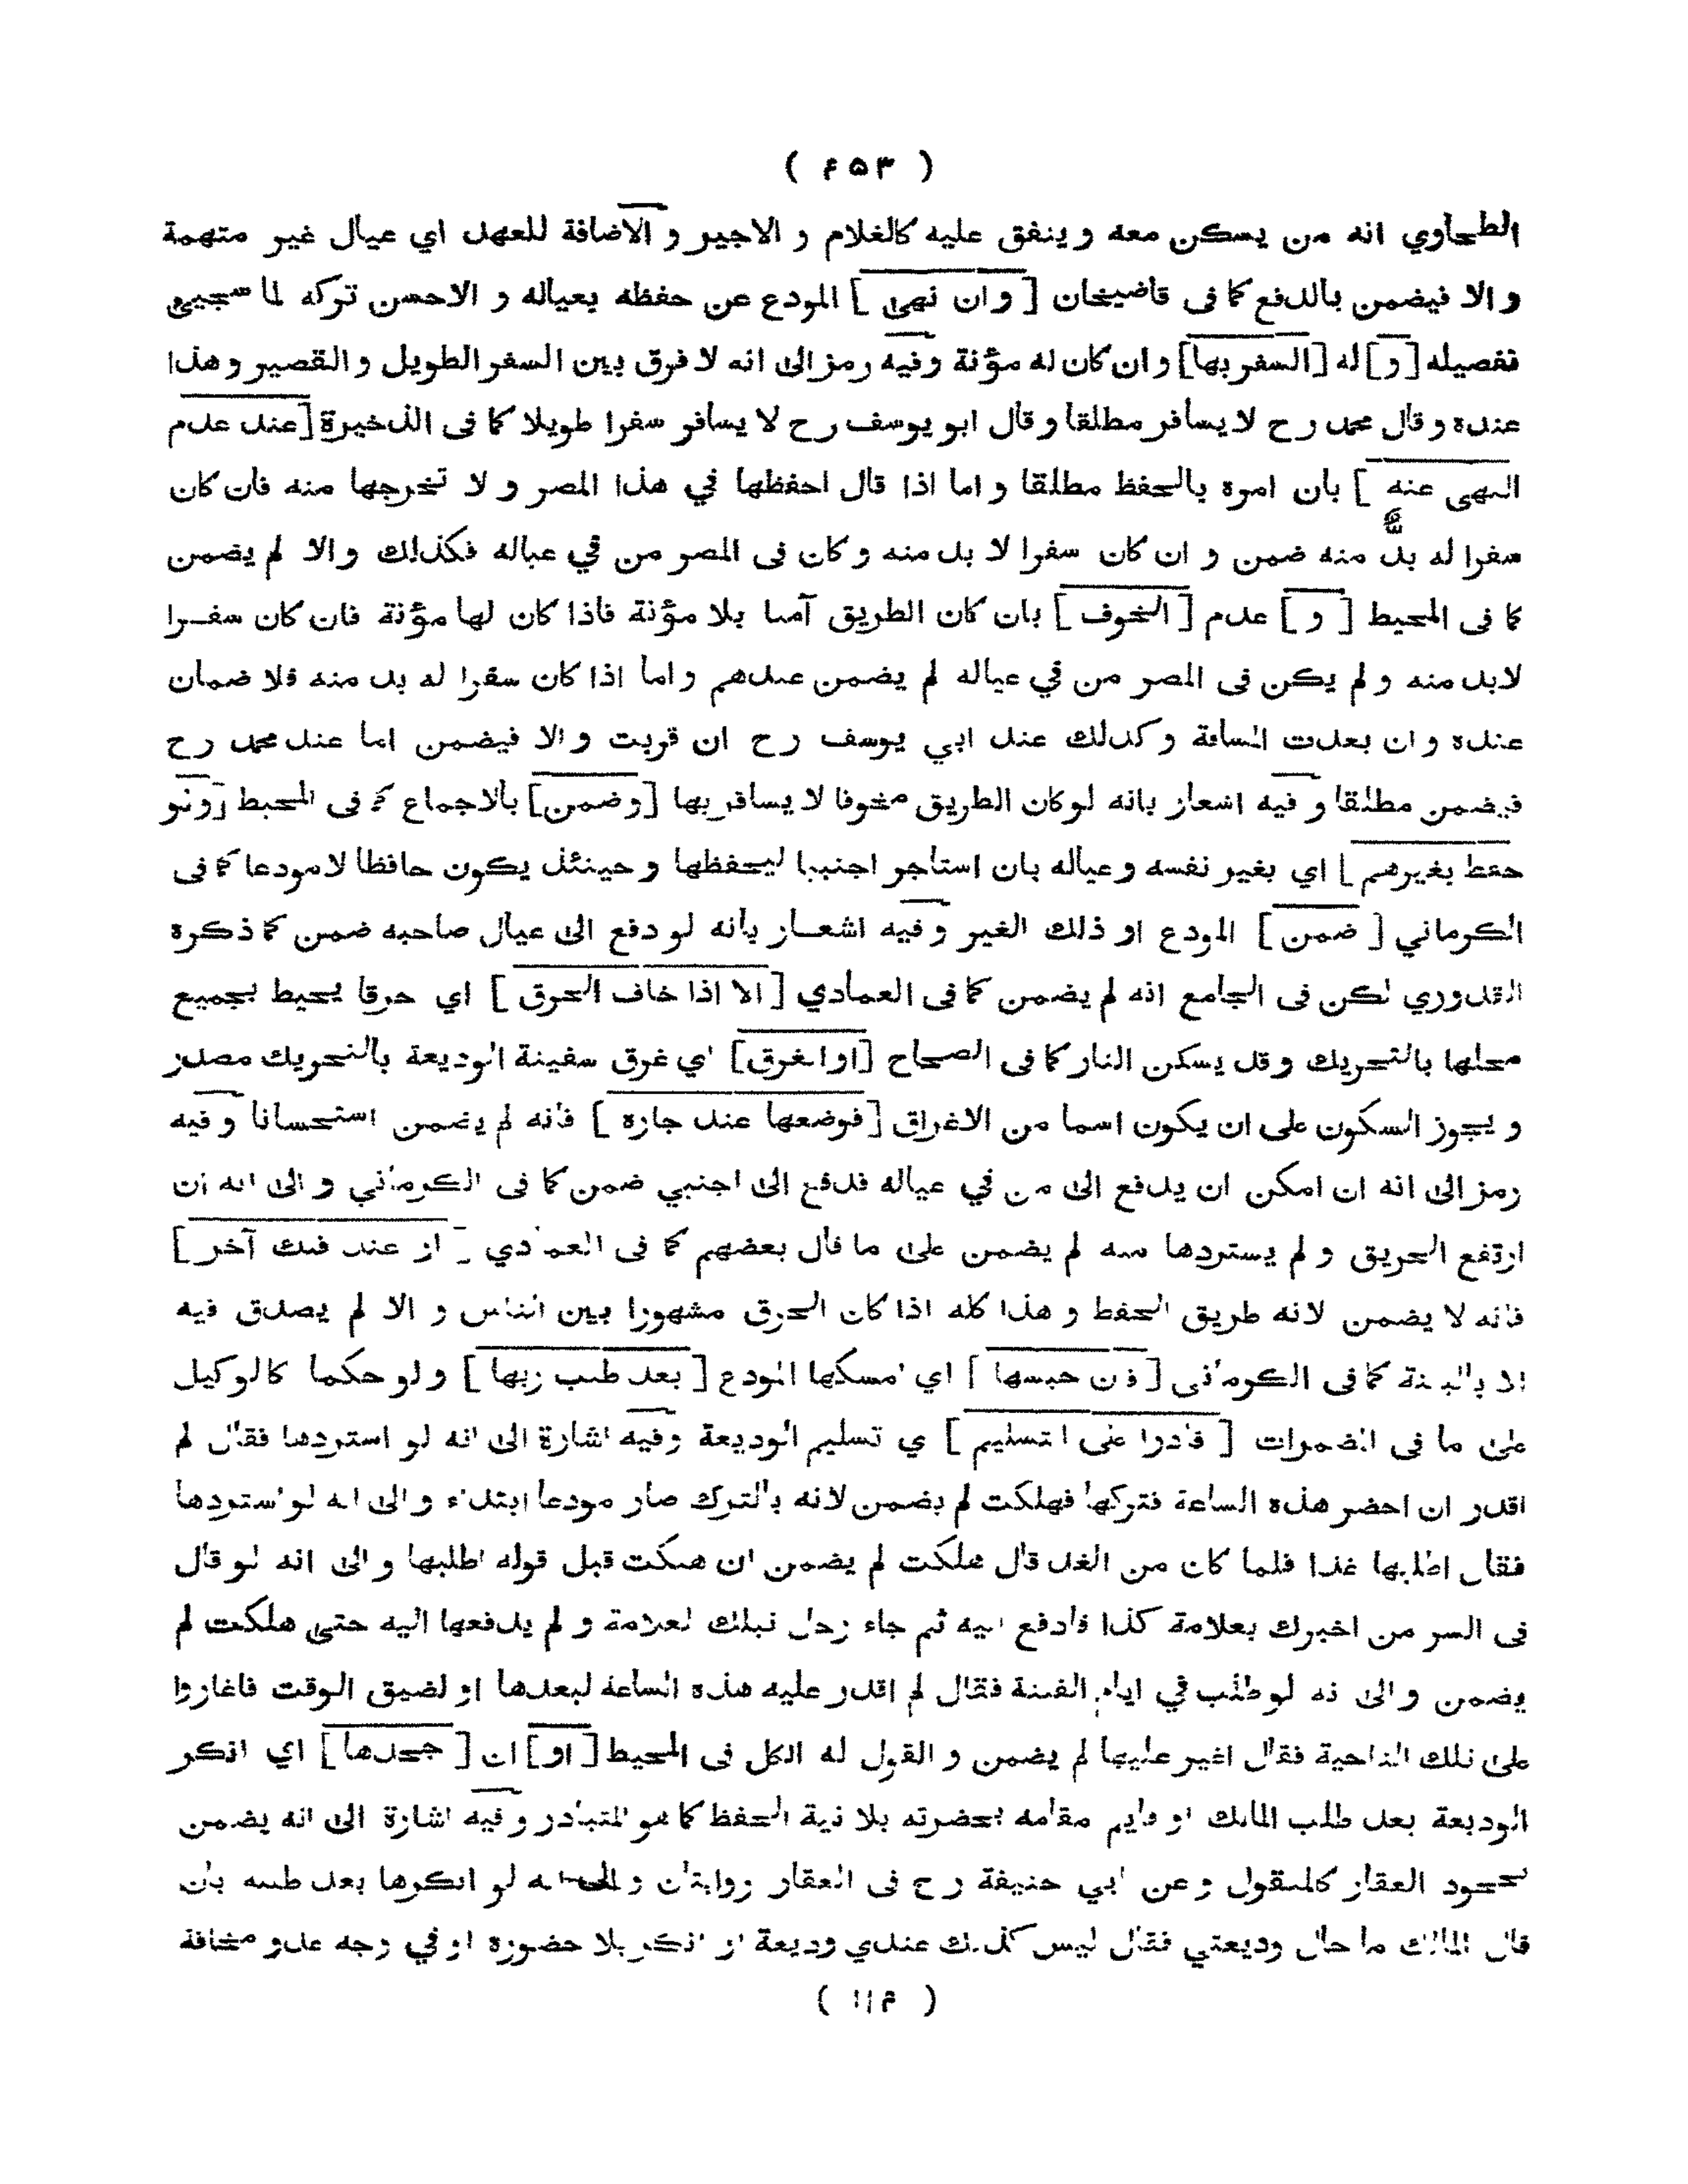 ( ۴۵۳ )
الطحاوي انه من يسكن معه وينفق عليه كالغلام و الاجير و الاضافة للعهد اي عيال غير متهمة
و الا فيضمن بالدفع كما فى قاضيخان [ و ان نهى ] المودع عن حفظه بعياله و الاحسن تركه لما سجيئ
تفصيله [ و ] له [ السفر بها ] و ان كان له مؤنة وفيه رمز الى انه لا فرق بين السفر الطويل و القصير وهذا
عنده وقال محمد رح لا يسافر مطلقا وقال ابو يوسف رح لا يسافر سفرا طويلا كما فى الذخيرة [ عند عدم
النهى عنه ] بان امره بالحفظ مطلقا و اما اذا قال احفظها في هذا المصر و لا تخرجها منه فان كان
سفرا له بد منه ضمن و ان كان سفرا لا بد منه و كان فى المصر من في عياله فكذلك والا لم يضمن
كما فى المحيط [ و ] عدم [ الخوف ] بان كان الطريق آمنا بلا مؤنة فاذا كان لها مؤنة فان كان سفرا
لابد منه و لم يكن فى المصر من في عياله لم يضمن عندهم و اما اذا كان سفرا له بد منه فلا ضمان
عنده و ان بعدت المسافة وكذلك عند ابي يوسف رح ان قربت و الا فيضمن اما عند محمد رح
فيضمن مطلقا و فيه اشعار بانه لوكان الطريق مخوفا لا يسافر بها [ وضمن ] بالاجماع كما فى المحيط [ ولو
حفظ بغيرهم ] اي بغير نفسه وعياله بان استاجر اجنبيا ليحفظها وحينئذ يكون حافظا لا مودعا كما فى
الكرماني [ ضمن ] المودع او ذلك الغير وفيه اشعار بانه لو دفع الى عيال صاحبه ضمن كما ذكره
القدوري لكن فى الجامع انه لم يضمن كما فى العمادي [ الا اذا خاف الحرق ] اي حرقا يحيط بجميع
محلها بالتحريك وقد يسكن النار كما فى الصحاح [ او الغرق ] اي غرق سفينة الوديعة بالتحريك مصدر
و يجوز السكون على ان يكون اسما من الاغراق [ فوضعها عند جاره ] فانه لم يضمن استحسانا وفيه
رمز الى انه ان امكن ان يدفع الى من في عياله فدفع الى اجنبي ضمن كما فى الكرماني و الى انه ان
ارتفع الحريق و لم يستردها منه لم يضمن على ما قال بعضهم كما فى العمادي [ او عند فلك آخر ]
فانه لا يضمن لانه طريق الحفظ و هذا كله اذا كان الحرق مشهورا بين الناس و الا لم يصدق فيه
الا بالبينة كما فى الكرماني [ فان حبسها ] اي امسكها المودع [ بعد طلب ربها ] ولو حكما كالوكيل
على ما فى المضمرات [ قادرا على التسليم ] اي تسليم الوديعة وفيه اشارة الى انه لو استردها فقال لم
اقدر ان احضر هذه الساعة فتركها فهلكت لم يضمن لانه بالترك صار مودعا ابتداء و الى انه لو استردها
فقال اطلبها غدا فلما كان من الغد قال هلكت لم يضمن ان هلكت قبل قوله اطلبها و الى انه لو قال
فى السر من اخبرك بعلامة كذا فادفع اليه ثم جاء رجل بتلك العلامة و لم يدفعها اليه حتى هلكت لم
يضمن و الى انه لو طلب في ايام الفتنة فقال لم اقدر عليه هذه الساعة لبعدها او لضيق الوقت فاغاروا
على تلك الناحية فقال اغير عليها لم يضمن و القول له الكل فى المحيط [ او ] ان [ جحدها ] اي انكر
الوديعة بعد طلب المالك او قايم مقامه بحضرته بلا نية الحفظ كما هو المتبادر وفيه اشارة الى انه يضمن
بجحود العقار كالمنقول وعن ابي حنيفة رح فى العقار روايتان و الى انه لو انكرها بعد طلبه بان
قال المالك ما حال وديعتي فقال ليس كذلك عندي وديعة او انكر بلا حضوره او في وجه عدو مخافة
( ۱۱۴ )